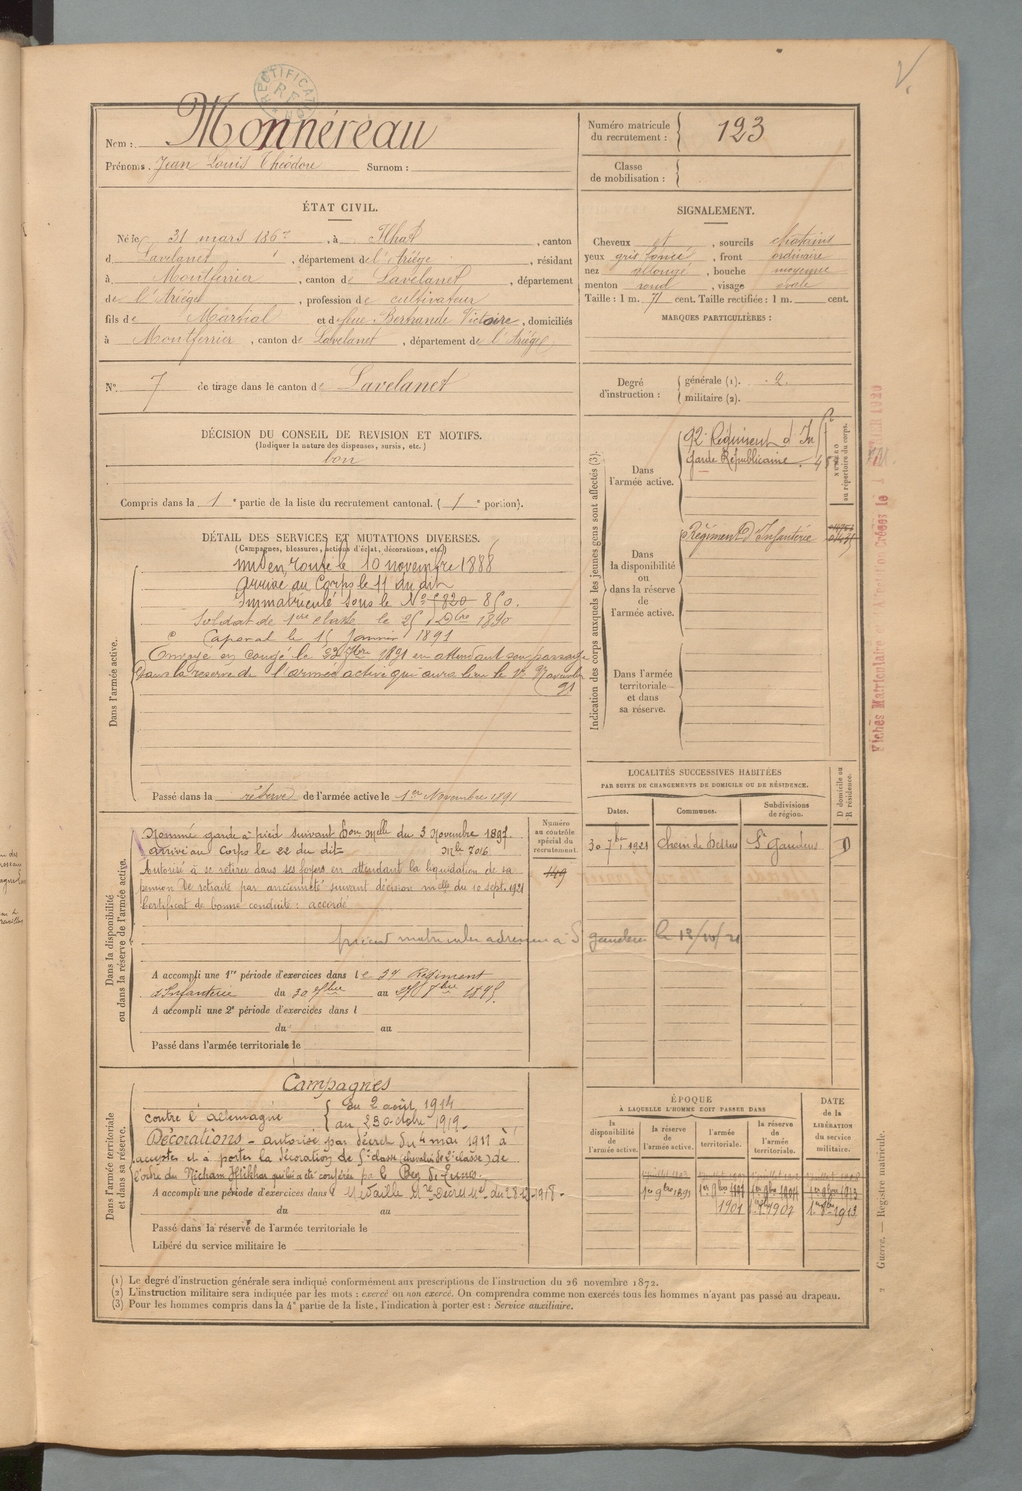 RECTIFICAT
R.F.
Nom : Monnéreau
Prénoms : Jean Louis Théodore Surnom :
Numéro matricule du recrutement : 123
Classe de mobilisation :
ÉTAT CIVIL.
Né le 31 mars 1867, à Ilhat, canton
d Lavelanet, département de l'Ariége, résidant
à Montferrier, canton de Lavelanet, département
de l'Ariége, profession de cultivateur
fils de Martial et de feue Bertrande Victoire, domiciliés
à Montferrier, canton de Lavelanet, département de l'Ariége
N° 7 de tirage dans le canton de Lavelanet
SIGNALEMENT.
Cheveux et, sourcils chatains
yeux gris foncé, front ordinaire
nez allongé, bouche moyenne
menton rond, visage ovale
Taille : 1 m. 71 cent. Taille rectifiée : 1 m. cent.
MARQUES PARTICULIÈRES :
Degré d'instruction : générale (1). 2
militaire (2).
DÉCISION DU CONSEIL DE REVISION ET MOTIFS.
(Indiquer la nature des dispenses, sursis, etc.)
bon
Compris dans la 1e partie de la liste du recrutement cantonal. (1e portion).
DÉTAIL DES SERVICES ET MUTATIONS DIVERSES.
(Campagnes, blessures, actions d'éclat, décorations, etc.)
Dans l'armée active.
Mis en route le 10 novembre 1888
arrivé au Corps le 11 du dit
Immatriculé sous le N° 5820 850.
Soldat de 1ère classe le 25 Dbre 1890
Caporal le 15 Janvier 1891
Envoyé en congé le 22 7bre 1891 en attendant son passage
Dans la réserve de l'armée active qui aura lieu le Novembre
91
Passé dans la réserve de l'armée active le 1er Novembre 1891
Indication des corps auxquels les jeunes gens sont affectés (3).
Dans l'armée active.
92e Régiment d'In
garde Républicaine.
NUMÉRO au répertoire du corps.
Dans la disponibilité ou dans la réserve de l'armée active.
Régiment D'Infanterie
Dans l'armée territoriale et dans sa réserve.
LOCALITÉS SUCCESSIVES HABITÉES
PAR SUITE DE CHANGEMENTS DE DOMICILE OU DE RÉSIDENCE.
Dates. Communes. Subdivisions de région. D domicile ou R résidence.
30 7bre 1921 St Gaudens D
Dans la disponibilité ou dans la réserve de l'armée active.
Numéro au contrôle spécial du recrutement.
449
Nommé garde à pied suivant Com melle du 3 Novembre 1897.
arrivé au Corps le 22 du dit Mle 7016.
Autorisé à se retirer dans ses foyers en attendant la liquidation de sa
pension de retraite par ancienneté suivant décision melle du 10 sept. 1921
Certificat de bonne conduite : accordé
matricules adressé à St gaudens le 13/10/21
A accompli une 1re période d'exercices dans le Régiment
d'Infanterie du 30 au 7bre 1895
A accompli une 2e période d'exercices dans l
du au
Passé dans l'armée territoriale le
Dans l'armée territoriale et dans sa réserve.
Campagnes
contre l'allemagne du 2 août 1914
au 23 octobre 1919.
Décorations - autorisé par décret du 4 mai 1911 à
accepter et à porter la décoration de 5e classe (chevalier de 2e classe) de
l'ordre du Nicham Iftikhar qui lui a été conférée par le Bey de Tunis.
A accompli une période d'exercices dans l Médaille
du au
Passé dans la réserve de l'armée territoriale le
Libéré du service militaire le
ÉPOQUE
À LAQUELLE L'HOMME DOIT PASSER DANS
la disponibilité de l'armée active. la réserve de l'armée active. l'armée territoriale. la réserve de l'armée territoriale.
DATE de la LIBÉRATION du service militaire.
1er 9bre 1891
1901 1907 1913
(1) Le degré d'instruction générale sera indiqué conformément aux prescriptions de l'instruction du 26 novembre 1872.
(2) L'instruction militaire sera indiquée par les mots : exercé ou non exercé. On comprendra comme non exercés tous les hommes n'ayant pas passé au drapeau.
(3) Pour les hommes compris dans la 4e partie de la liste, l'indication à porter est : Service auxiliaire.
Guerre. — Registre matricule.